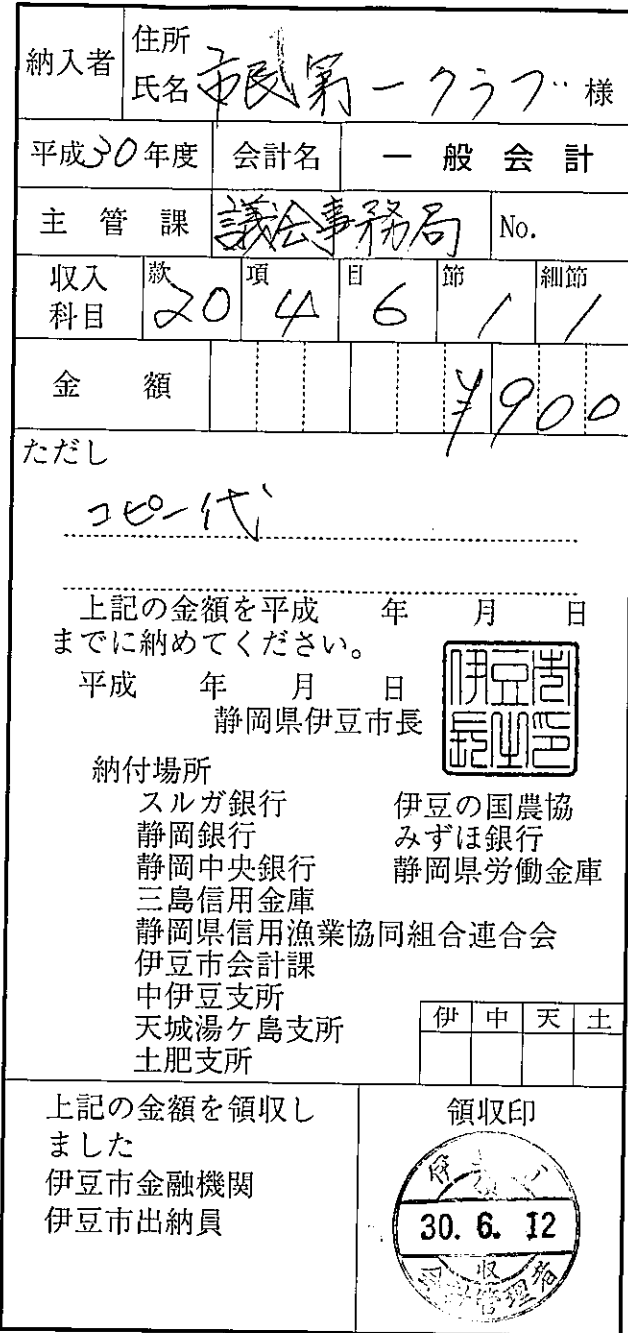 納入者 住所
氏名 市民第一クラブ 様
平成30年度 会計名 一般会計
主管課 議会事務局 No.
収入科目 款 20 項 4 目 6 節 1 細節 1
金額 ¥900
ただし
コピー代
上記の金額を平成 年 月 日
までに納めてください。
平成 年 月 日
静岡県伊豆市長
伊豆市長之印
納付場所
スルガ銀行 伊豆の国農協
静岡銀行 みずほ銀行
静岡中央銀行 静岡県労働金庫
三島信用金庫
静岡県信用漁業協同組合連合会
伊豆市会計課
中伊豆支所
天城湯ケ島支所
土肥支所
伊 中 天 土
上記の金額を領収し
ました
伊豆市金融機関
伊豆市出納員
領収印
30. 6. 12
収
会計管理者